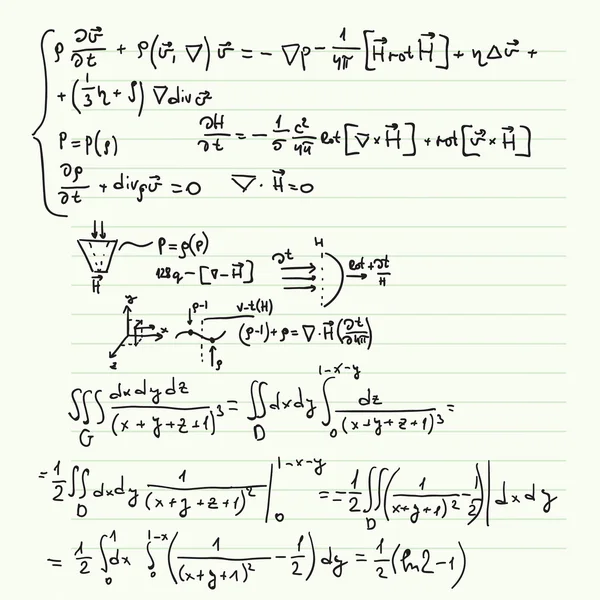 ρ ∂v⃗/∂t + ρ(v⃗, ∇)v⃗ = − ∇p − 1/4π [H⃗ rot H⃗] + ηΔv⃗ +
+ (1/3 η + ʃ) ∇ div v⃗
P = P(ρ) ∂H/∂t = − 1/5 c²/4π rot [∇ × H⃗] + rot [v⃗ × H⃗]
∂ρ/∂t + div ρv⃗ = 0 ∇ · H⃗ = 0
P = ρ(ρ)
128q − [∇ − H⃗]
H⃗
∂t H rot + ∂t/H
y x z
ρ-1 v-t(H)
(ρ-1) + ρ = ∇ · H⃗ (∂t/∂4π)
ρ
∭G dxdydz/(x+y+z+1)³ = ∬D dxdy ∫₀^(1-x-y) dz/(x+y+z+1)³ =
= 1/2 ∬D dxdy 1/(x+y+z+1)² |₀^(1-x-y) = −1/2 ∬D (1/(x+y+1)² − 1/2)| dxdy
= 1/2 ∫₀^1 dx ∫₀^(1-x) (1/(x+y+1)² − 1/2) dy = 1/2 (ln2 − 1)